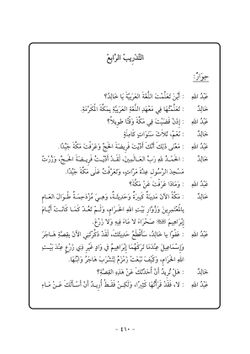 التَّدْرِيبُ الرَّابِعُ
حِوَارٌ:
عَبْدُ اللهِ : أَيْنَ تَعَلَّمْتَ اللُّغَةَ العَرَبِيَّةَ يَا خَالِدُ؟
خَالِدٌ : تَعَلَّمْتُهَا فِي مَعْهَدِ اللُّغَةِ العَرَبِيَّةِ بِمَكَّةَ المُكَرَّمَةِ.
عَبْدُ اللهِ : إِذَنْ قَضَيْتَ فِي مَكَّةَ وَقْتًا طَوِيلاً؟
خَالِدٌ : نَعَمْ، ثَلاَثَ سَنَوَاتٍ كَامِلَةٍ.
عَبْدُ اللهِ : مَعْنَى ذَلِكَ أَنَّكَ أَدَّيْتَ فَرِيضَةَ الحَجِّ وَعَرَفْتَ مَكَّةَ جَيِّدًا.
خَالِدٌ : الحَمْدُ للهِ رَبِّ العَالَمِينَ، لَقَدْ أَدَّيْتُ فَرِيضَةَ الحَجِّ، وَزُرْتُ
مَسْجِدَ الرَّسُولِ عِدَّةَ مَرَّاتٍ، وَتَعَرَّفْتُ عَلَى مَكَّةَ جَيِّدًا.
عَبْدُ اللهِ : وَمَاذَا عَرَفْتَ عَنْ مَكَّةَ؟
خَالِدٌ : مَكَّةُ الآنَ مَدِينَةٌ كَبِيرَةٌ وَحَدِيثَةٌ، وَهِيَ مُزْدَحِمَةٌ طُوَالَ العَامِ
بِالمُعْتَمِرِينَ وَزُوَّارِ بَيْتِ اللهِ الحَرَامِ، وَلَمْ تَعُدْ كَمَا كَانَتْ أَيَّامَ
إِبْرَاهِيمَ صَحْرَاءَ لاَ مَاءَ فِيهِ وَلاَ زَرْعَ.
عَبْدُ اللهِ : عَفْوًا يَا خَالِدُ، سَأَقْطَعُ حَدِيثَكَ، لَقَدْ ذَكَّرْتَنِي الآنَ بِقِصَّةِ هَاجَرَ
وَإِسْمَاعِيلَ عِنْدَمَا تَرَكَهُمَا إِبْرَاهِيمُ فِي وَادٍ غَيْرِ ذِي زَرْعٍ عِنْدَ بَيْتِ
اللهِ الحَرَامِ، وَكَيْفَ نَبَعَتْ زَمْزَمُ لِتَشْرَبَ هَاجَرُ وَابْنُهَا.
خَالِدٌ : هَلْ تُرِيدُ أَنْ أُحَدِّثَكَ عَنْ هَذِهِ القِصَّةِ؟
عَبْدُ اللهِ : لاَ، فَقَدْ قَرَأْتُهَا كَثِيرًا، وَلَكِنْ فَقَطْ أُرِيدُ أَنْ أَسْأَلَكَ عَنْ مَاءِ
- ٤١٠ -